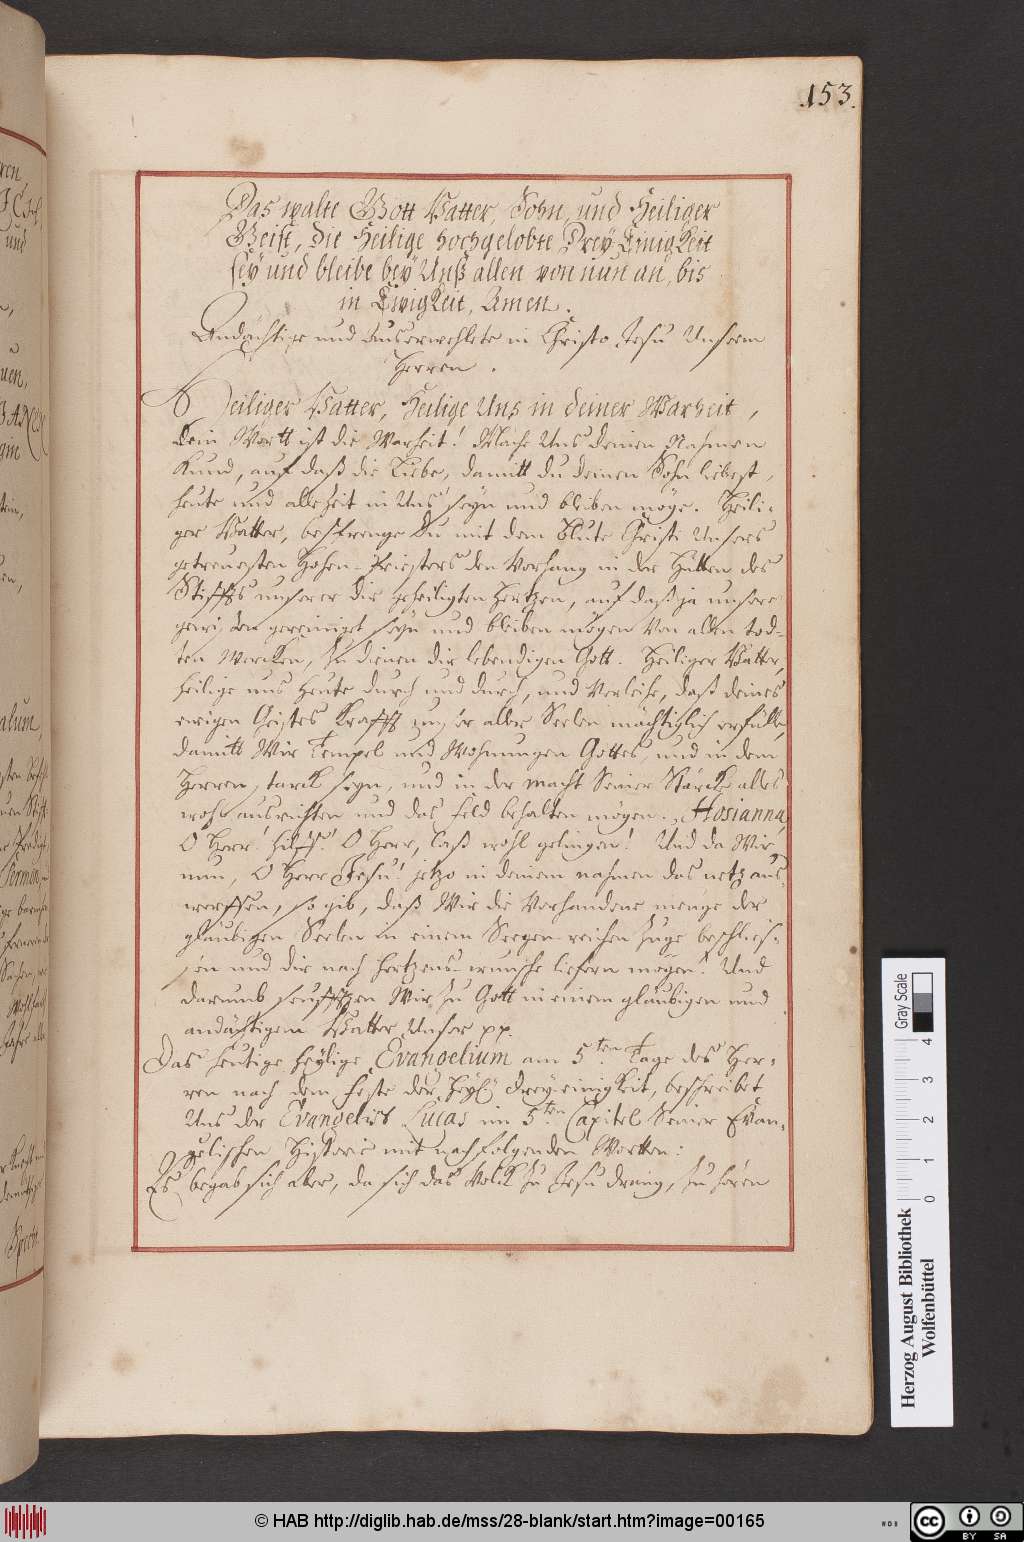 153.
Das walte Gott Vatter, Sohn, und Heiliger
Geist, die Heilige hochgelobte Drey Einigkeit
sey und bleibe bey Unß allen von nun an, bis
in Ewigkeit, Amen.
Andächtige und Auserwehlete in Christo Jesu Unserm
Herren.
Heiliger Vatter, Heilige Uns in deiner Warheit,
Dein Wortt ist die Warheit! Mache Uns deinen Nahmen
Kund, auf daß die Liebe, damitt du deinen Sohn liebest,
heute und alle Zeit in Uns seyn und bleiben möge. Heili-
ger Vatter, besprenge Du mit dem Blute Christi Unsers
getreuesten Hohen-Priesters den Vorhang in der Hütten des
Stiffts unserer dir geheiligten Hertzen, auf daß ja unsere
gewissen gereiniget seyn und bleiben mögen von allen tod-
ten Wercken, zu dienen dir lebendigen Gott. Heiliger Vatter,
heilige uns heute durch und durch, und Verleihe, daß deines
ewigen Geistes Krafft unser aller Seelen mächtiglich erfülle,
damitt Wir Tempel und Wohnungen Gottes, und in dem
Herren starck seyn, und in der macht Seiner Stärcke alles
wohl ausrichten und das feld behalten mögen. Hosianna,
O Herr! hilff! O Herr, laß wohl gelingen! Und da Wir
nun, O Herr Jesu! jetzo in deinem nahmen das netz aus-
werffen, so gib, daß Wir die Vorhandene menge der
gläubigen Seelen in einem Seegen-reichen Zuge beschlies-
sen und dir nach hertzens-wunsche liefern mögen! Und
darumb seufftzen Wir zu Gott in einem gläubigen und
andächtigem Vatter Unser pp.
Das heutige heylige Evangelium am 5ten Tage des Her-
ren nach dem feste der Heyl. Drey-einigkeit, beschreibet
Uns der Evangelist Lucas im 5ten Capitel Seiner Evan-
gelischen Historie mit nachfolgenden Wortten:
Es begab sich aber, da sich das Volck zu Jesu drang, zu hören
Gray Scale
0 1 2 3 4
Herzog August Bibliothek
Wolfenbüttel
© HAB http://diglib.hab.de/mss/28-blank/start.htm?image=00165
WDB
cc BY SA